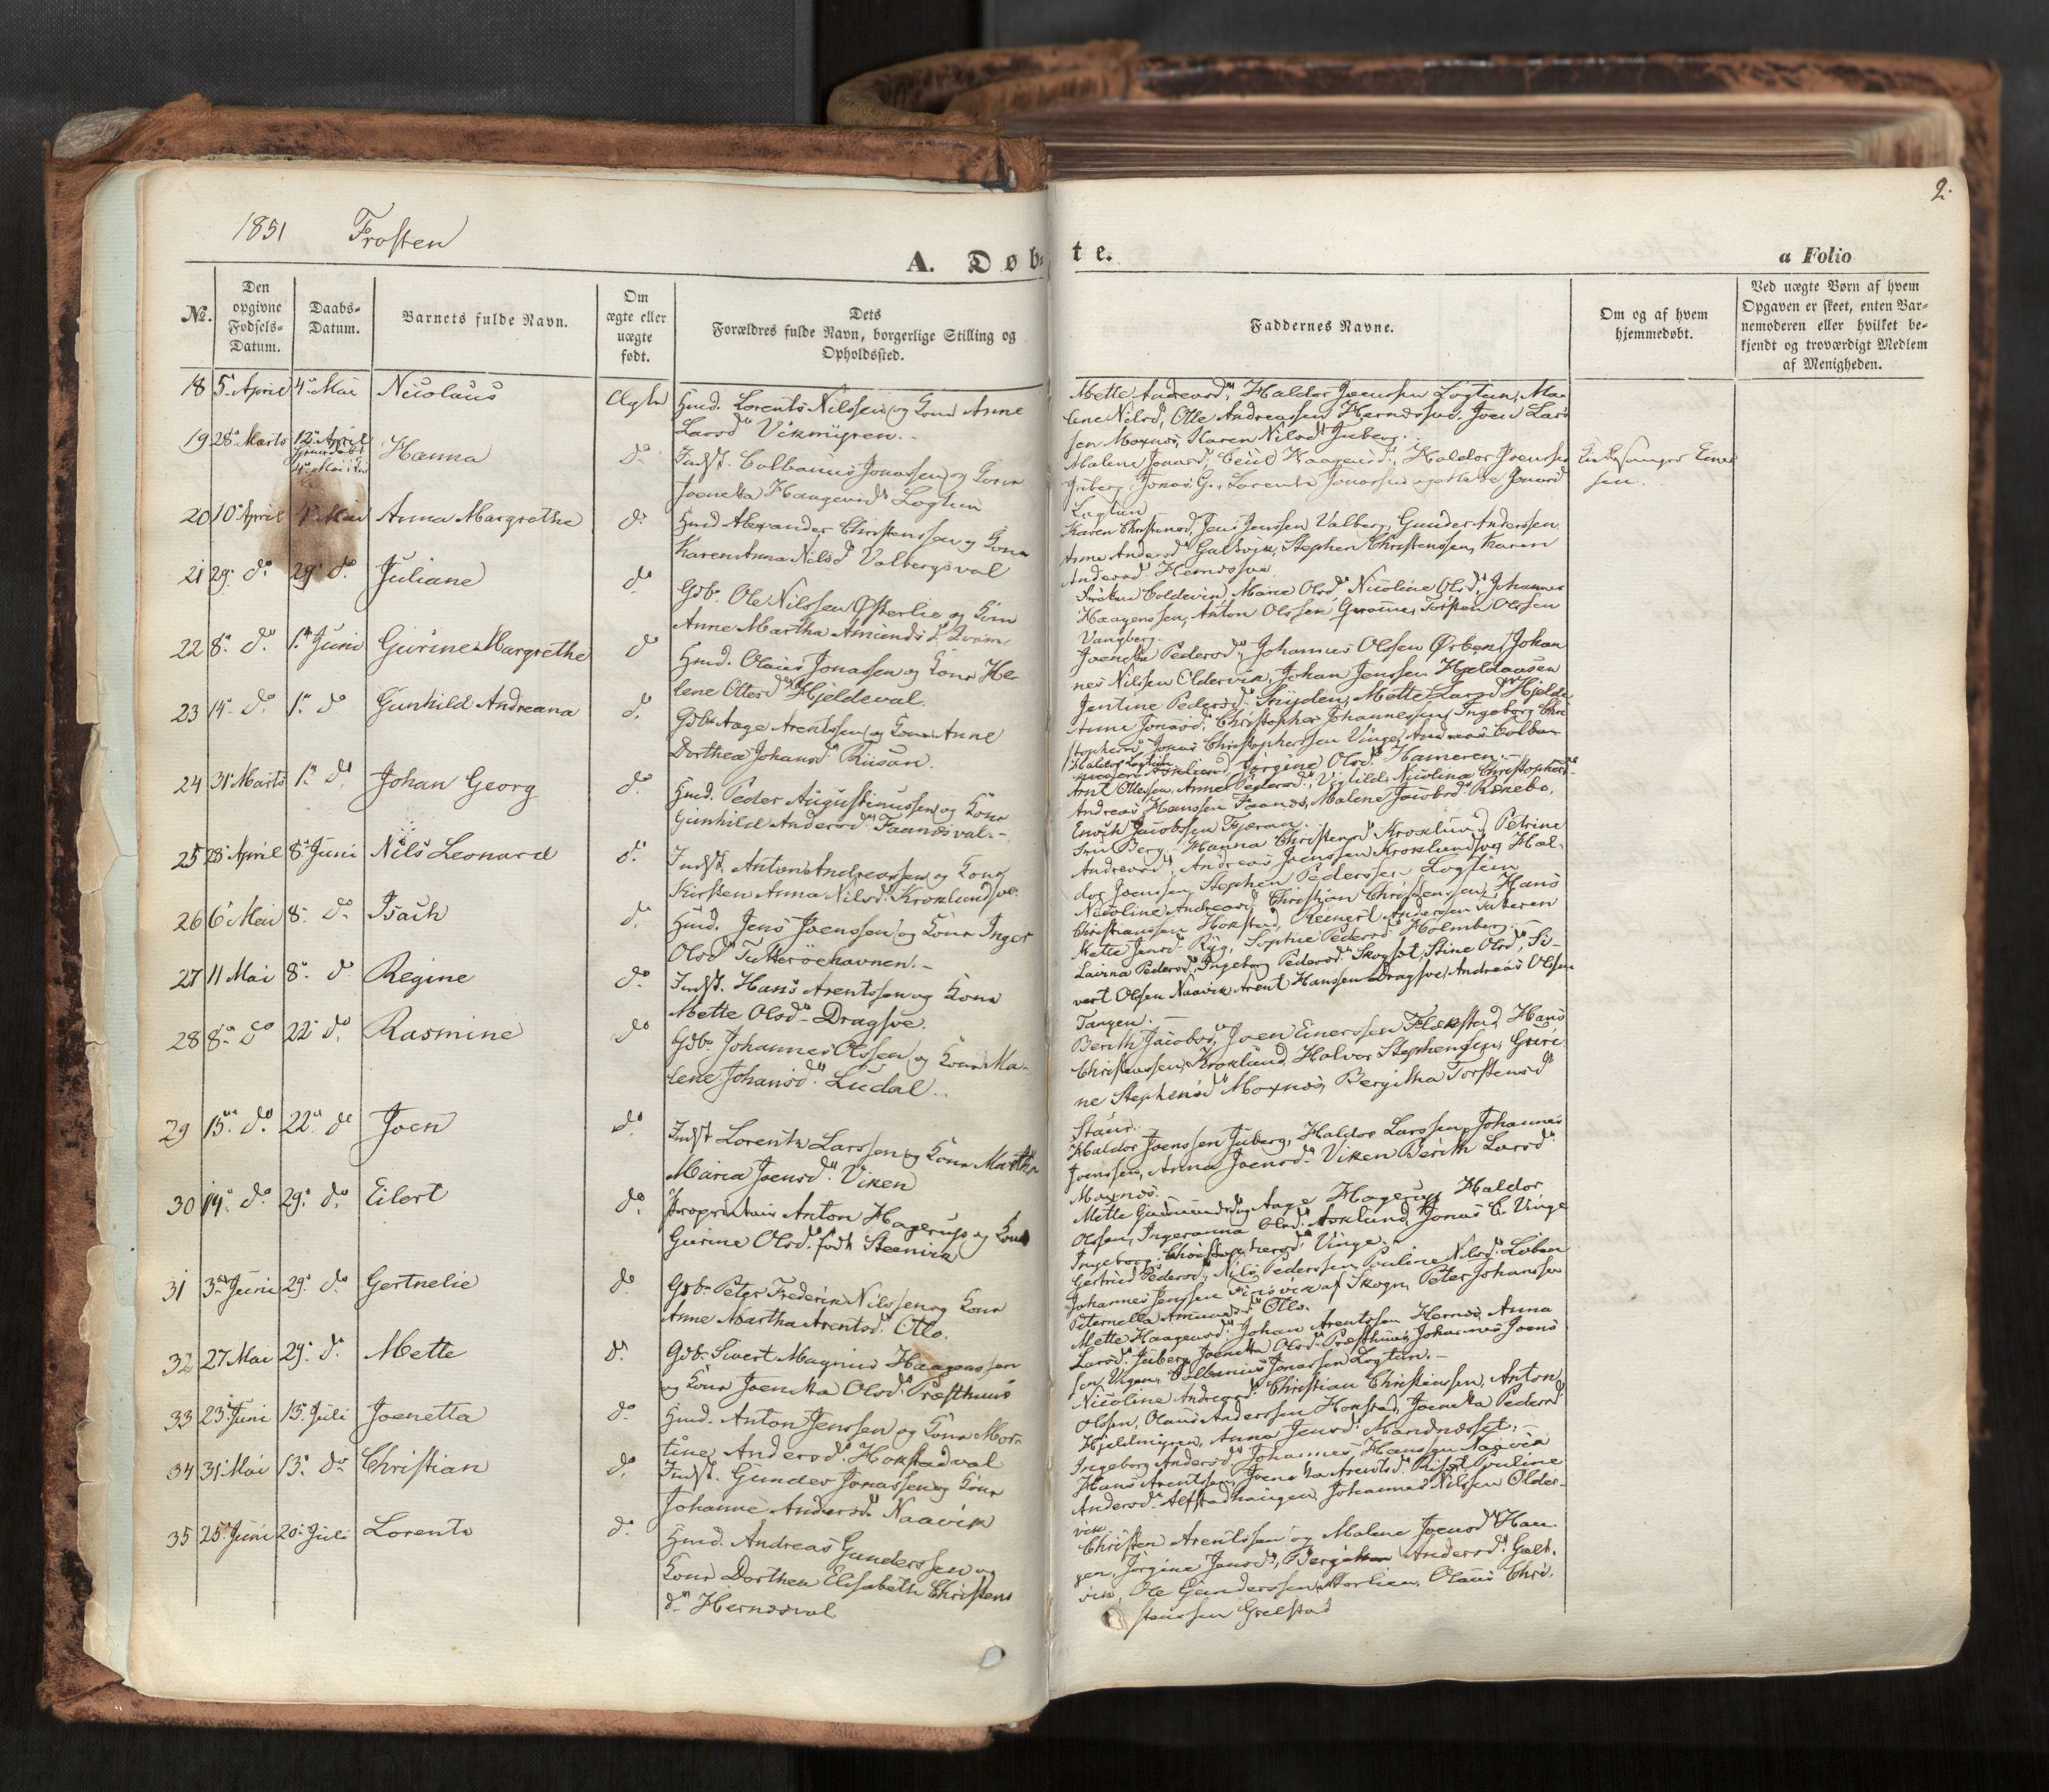 1851 Frosten
2.
A. Døb-
te.
a Folio
No.
Den
opgivne
Fødsels-
Datum.
Daabs-
Datum.
Barnets fulde Navn.
Om
ægte eller
uægte
født.
Dets
Forældres fulde Navn, borgerlige Stilling og
Opholdssted.
Faddernes Navne.
Om og af hvem
hjemmedøbt.
Ved uægte Børn af hvem
Opgaven er skeet, enten Bar-
nemoderen eller hvilket be-
kjendt og troværdigt Medlem
af Menigheden.
18 5 April 4 Mai Nicolaus Ægte Hmd. Lorents Nilssen og Kone Anne
Larsd Vikmyren.
Mette Andreasd, Haldor Joenssen Logtun, Ma-
lene Nilsd, Otte Andreassen Hernæs, Joen Lars
sen Moxnæs, Karen Nilsd Juberg.
19 28 Marts 12 April
Hanna do Indst. Colbanus Jonassen og Kone
Joenetta Haagensd Logtun
Malene Jonasd, Haagensd, Haldor Joenssen
Juberg, Jonas G., Lorents Jonassen og Mette Jonasd
Logtun
Kirkesanger Einer
sen.
20 10 April 4 Mai Anna Margrethe do Hmd Alexander Christenssen og Kone
Karen Anna Nilsd Valbergsval
Karen Christensd, Jens Jenssen Valberg, Gunder Anderssen
Anne Andersd Galtvik, Stephen Christenssen, Karen
Andersd
21 29 do 29 do Juliane do Gdb. Ole Nilssen Østerlie og Kone
Anne Martha Amundsd
Frøken Coldevin, Marie Olsd, Nicoline Olsd, Johannes
Haagenssen, Anton Olssen, Torsten Olssen
Vangberg.
22 8 do 1 Juni Gurine Margrethe do Hmd. Olaus Jonassen og Kone He-
lene Ottersd Hjeldeval.
Joenetta Pedersd, Johannes Olssen Ørben, Johan
nes Nilssen Eldervik, Johan Jenssen Haldaasen
Jentine Pedersd Mette Larsd Hjelde
23 14 do 1 do Gunhild Andreana do Gdb Aage Arentssen og Kone Anne
Dorthea Johansd Risan
Anne Jonasd, Christopher Johannessen, Ingeborg Chri
stophersd, Jonas Christopherssen Vinge, Andreas Colban
Jørgine Olsd Hameren.
24 31 Marts 1 do Johan Georg do Hmd. Peder Augustinussen og Kone
Gunhild Andersd Faanæsval.
Arnt Ottessen, Anne Pedersd, Nicolina Christophersd
Andreas Hanssen Faanæs, Malene Jacobsd Rønebo,
Jacobssen Fjæran.
25 28 April 8 Juni Nils Leonard do Indst. Anton Andreassen og Kone
Kirsten Anna Nilsd Kroxlundsv.
Fru Berg, Hanna Christensd Kroxlund, Petrine
Andreasd, Andreas Joenssen Kroxlund og Hal-
dor Joenssen, Stephen Pederssen Logtun
26 6 Mai 8 do Isach do Hmd. Jens Joenssen og Kone Inger
Olsd Tutterøehavnen.
Nicoline Andreasd, Christian Christenssen, Hans
Christianssen Hokstad, Reinert Anderssen Tutteren
Mette Jensd Ryg, Sophie Pedersd Holmberg.
27 11 Mai 8 do Regine do Indst. Hans Arentssen og Kone
Mette Olsd Dragsve.
Lavina Pedersd, Ingeborg Pedersd Stine Olsd, Si-
vert Olssen Naavik, Arent Hanssen Dragsve, Andreas Olssen
Tangen.
28 8 do 22 do Rasmine do Gdb. Johannes Olssen og Kone Ma-
lene Johansd Ludal
Berith Jacobsd, Joen Einerssen Flækstad, Hans
Christenssen Kroxlund, Halvor Stephenssen, Guri
ne Stephensd Moxnæs, Bergitha Torstensd
Staur.
29 15 do 22 do Joen do Indst Lorents Larssen og Kone Martha
Maria Joensd Viken
Haldor Joenssen Juberg, Haldor Larssen, Johannes
Joenssen, Anna Joensd Viken, Berith Larsd
Moxnæs.
30 14 do 29 do Eilert do Proprietair Anton Hagerup og Kone
Gurine Olsd født Steenvik
Mette Aage Hagerup, Haldor
Olssen, Ingeranna Olsd Aasklund, Jonas C. Vinge
Ingeborg Christophersd Vinge.
31 3 Juni 29 do Gertnelie do Gdb. Peter Frederik Nilssen og Kone
Anne Martha Arentsd Otlo.
Gertrud Pedersd, Nils Pederssen, Pauline Nilsd Loben
Johannes Jenssen af Skogn, Peter Johanssen
Peternella Amundsd Otlo.
32 27 Mai 29 do Mette do Gdb. Sivert Magnus Haagenssen
og Kone Joenetta Olsd Præsthuus
Mette Haagensd, Johan Arentssen Hernæs, Anna
Larsd Juberg, Joenetta Olsd Præsthuus, Johannes Joens
sen Vigen, Colbanus Jonassen Logtun.
33 23 Juni 13 Juli Joenetta do Hmd. Anton Jenssen og Kone Mor-
tine Andersd Hokstadval
Nicoline Andreasd, Christian Christenssen, Anton
Olssen, Olaus Anderssen Hokstad, Joenetta Pedersd
Hjeldmyren, Anna Jensd Mandnæsset.
34 31 Mai 13 do Christian do Indst. Gunder Jonassen og Kone
Johanne Andersd Naavik
Ingeborg Andersd, Johannes Hanssen Naavik
Hans Arentssen, Joenetta Arentsd Pauline
Andersd Alfstadhaugen, Johannes Nilssen Older-
vik
35 25 Juni 20 Juli Lorents do Hmd. Andreas Gunderssen og
Kone Dorthea Elisabeth Christens
d Hernæsval
Christen Arentssen og Malene Joensd Hau-
gen, Jørgine Jensd, Andersd Galt-
vik, Ole Gunderssen Olaus Chri-
stenssen Grelstad